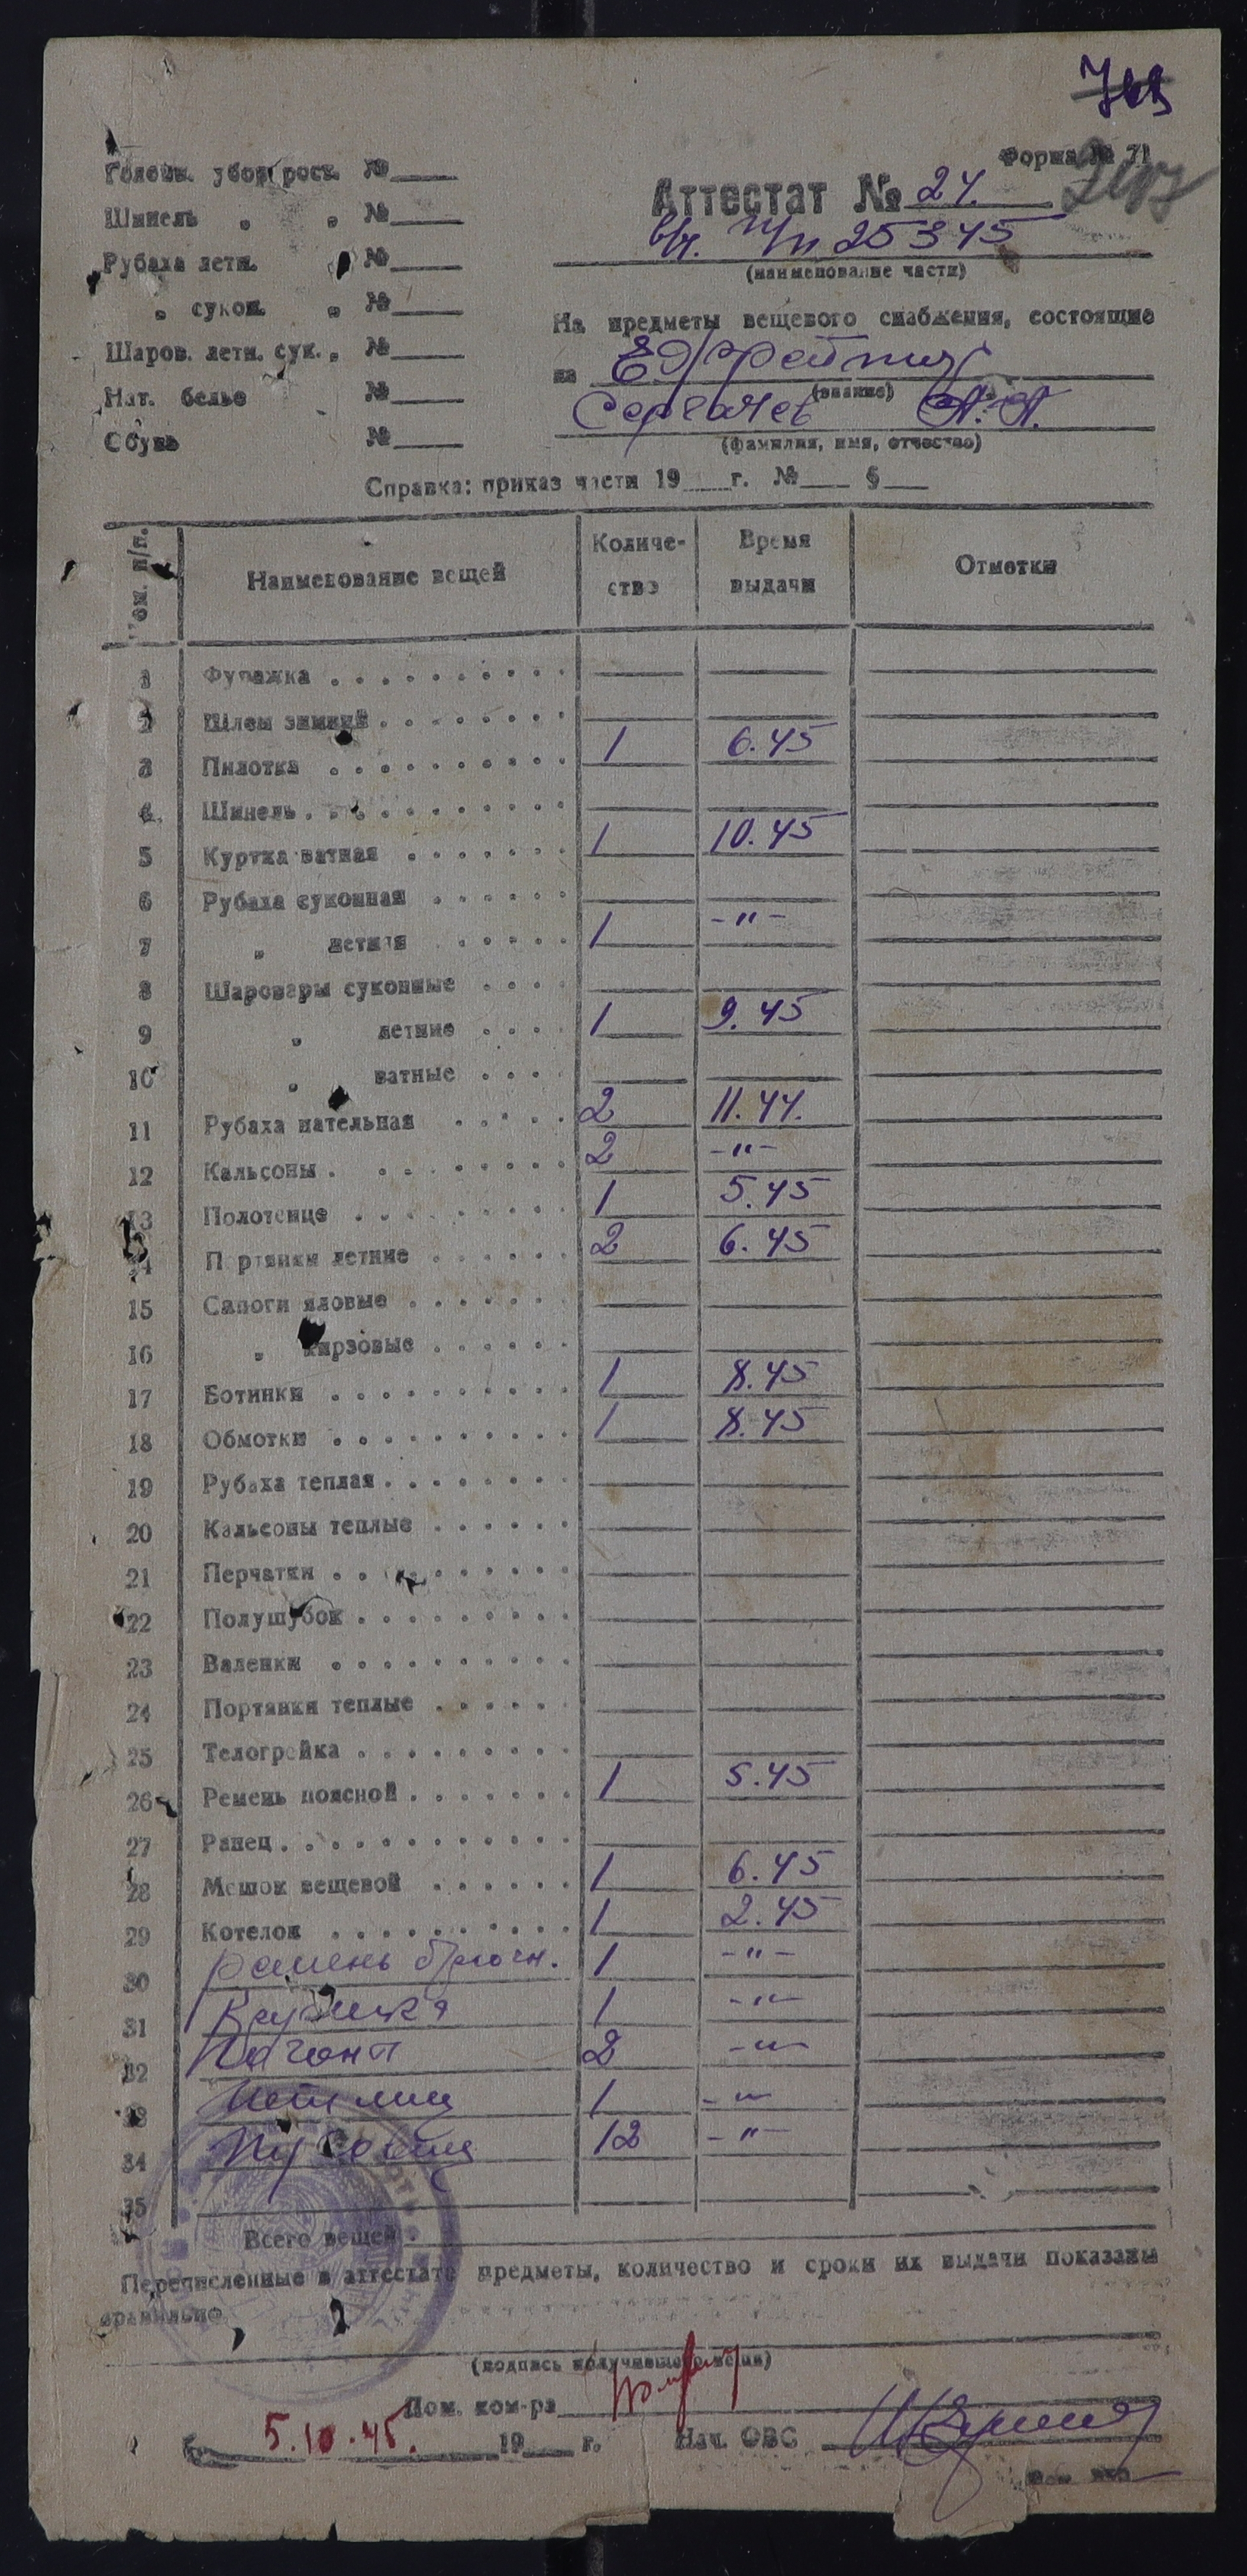 Форма № 71
Головн. убор рост. №
Шинель " " №
Рубаха летн. " №
" сукон. " №
Шаров. летн. сук. " №
Нат. белье №
Обувь №
Аттестат № 24.
в/ч. п/п 25345
(наименование части)
На предметы вещевого снабжения, состоящие
на Ефрейтор
(звание)
Сергачев А. А.
(фамилия, имя, отчество)
Справка: приказ части 19 г. № §
Ном. п/п. Наименование вещей Количество Время выдачи Отметки
1 Фуражка
2 Шлем зимний
3 Пилотка 1 6.45
4 Шинель
5 Куртка ватная 1 10.45
6 Рубаха суконная
7 " летняя 1 -"-
8 Шаровары суконные
9 " летние 1 9.45
10 " ватные
11 Рубаха нательная 2 11.44.
12 Кальсоны 2 -"-
13 Полотенце 1 5.45
14 Портянки летние 2 6.45
15 Сапоги яловые
16 " кирзовые
17 Ботинки 1 8.45
18 Обмотки 1 8.45
19 Рубаха теплая
20 Кальсоны теплые
21 Перчатки
22 Полушубок
23 Валенки
24 Портянки теплые
25 Телогрейка
26 Ремень поясной 1 5.45
27 Ранец
28 Мешок вещевой 1 6.45
29 Котелок 1 2.45
30 ремень брючн. 1 -"-
31 Кружка 1 -"-
32 Погоны 2 -"-
33 Петлиц 1 -"-
34 Пуговиц 12 -"-
35
Всего вещей
Перечисленные в аттестате предметы, количество и сроки их выдачи показаны
правильно
(подпись получившего вещи)
Пом. ком-ра
5.10.45. 19 г. Нач. ОВС